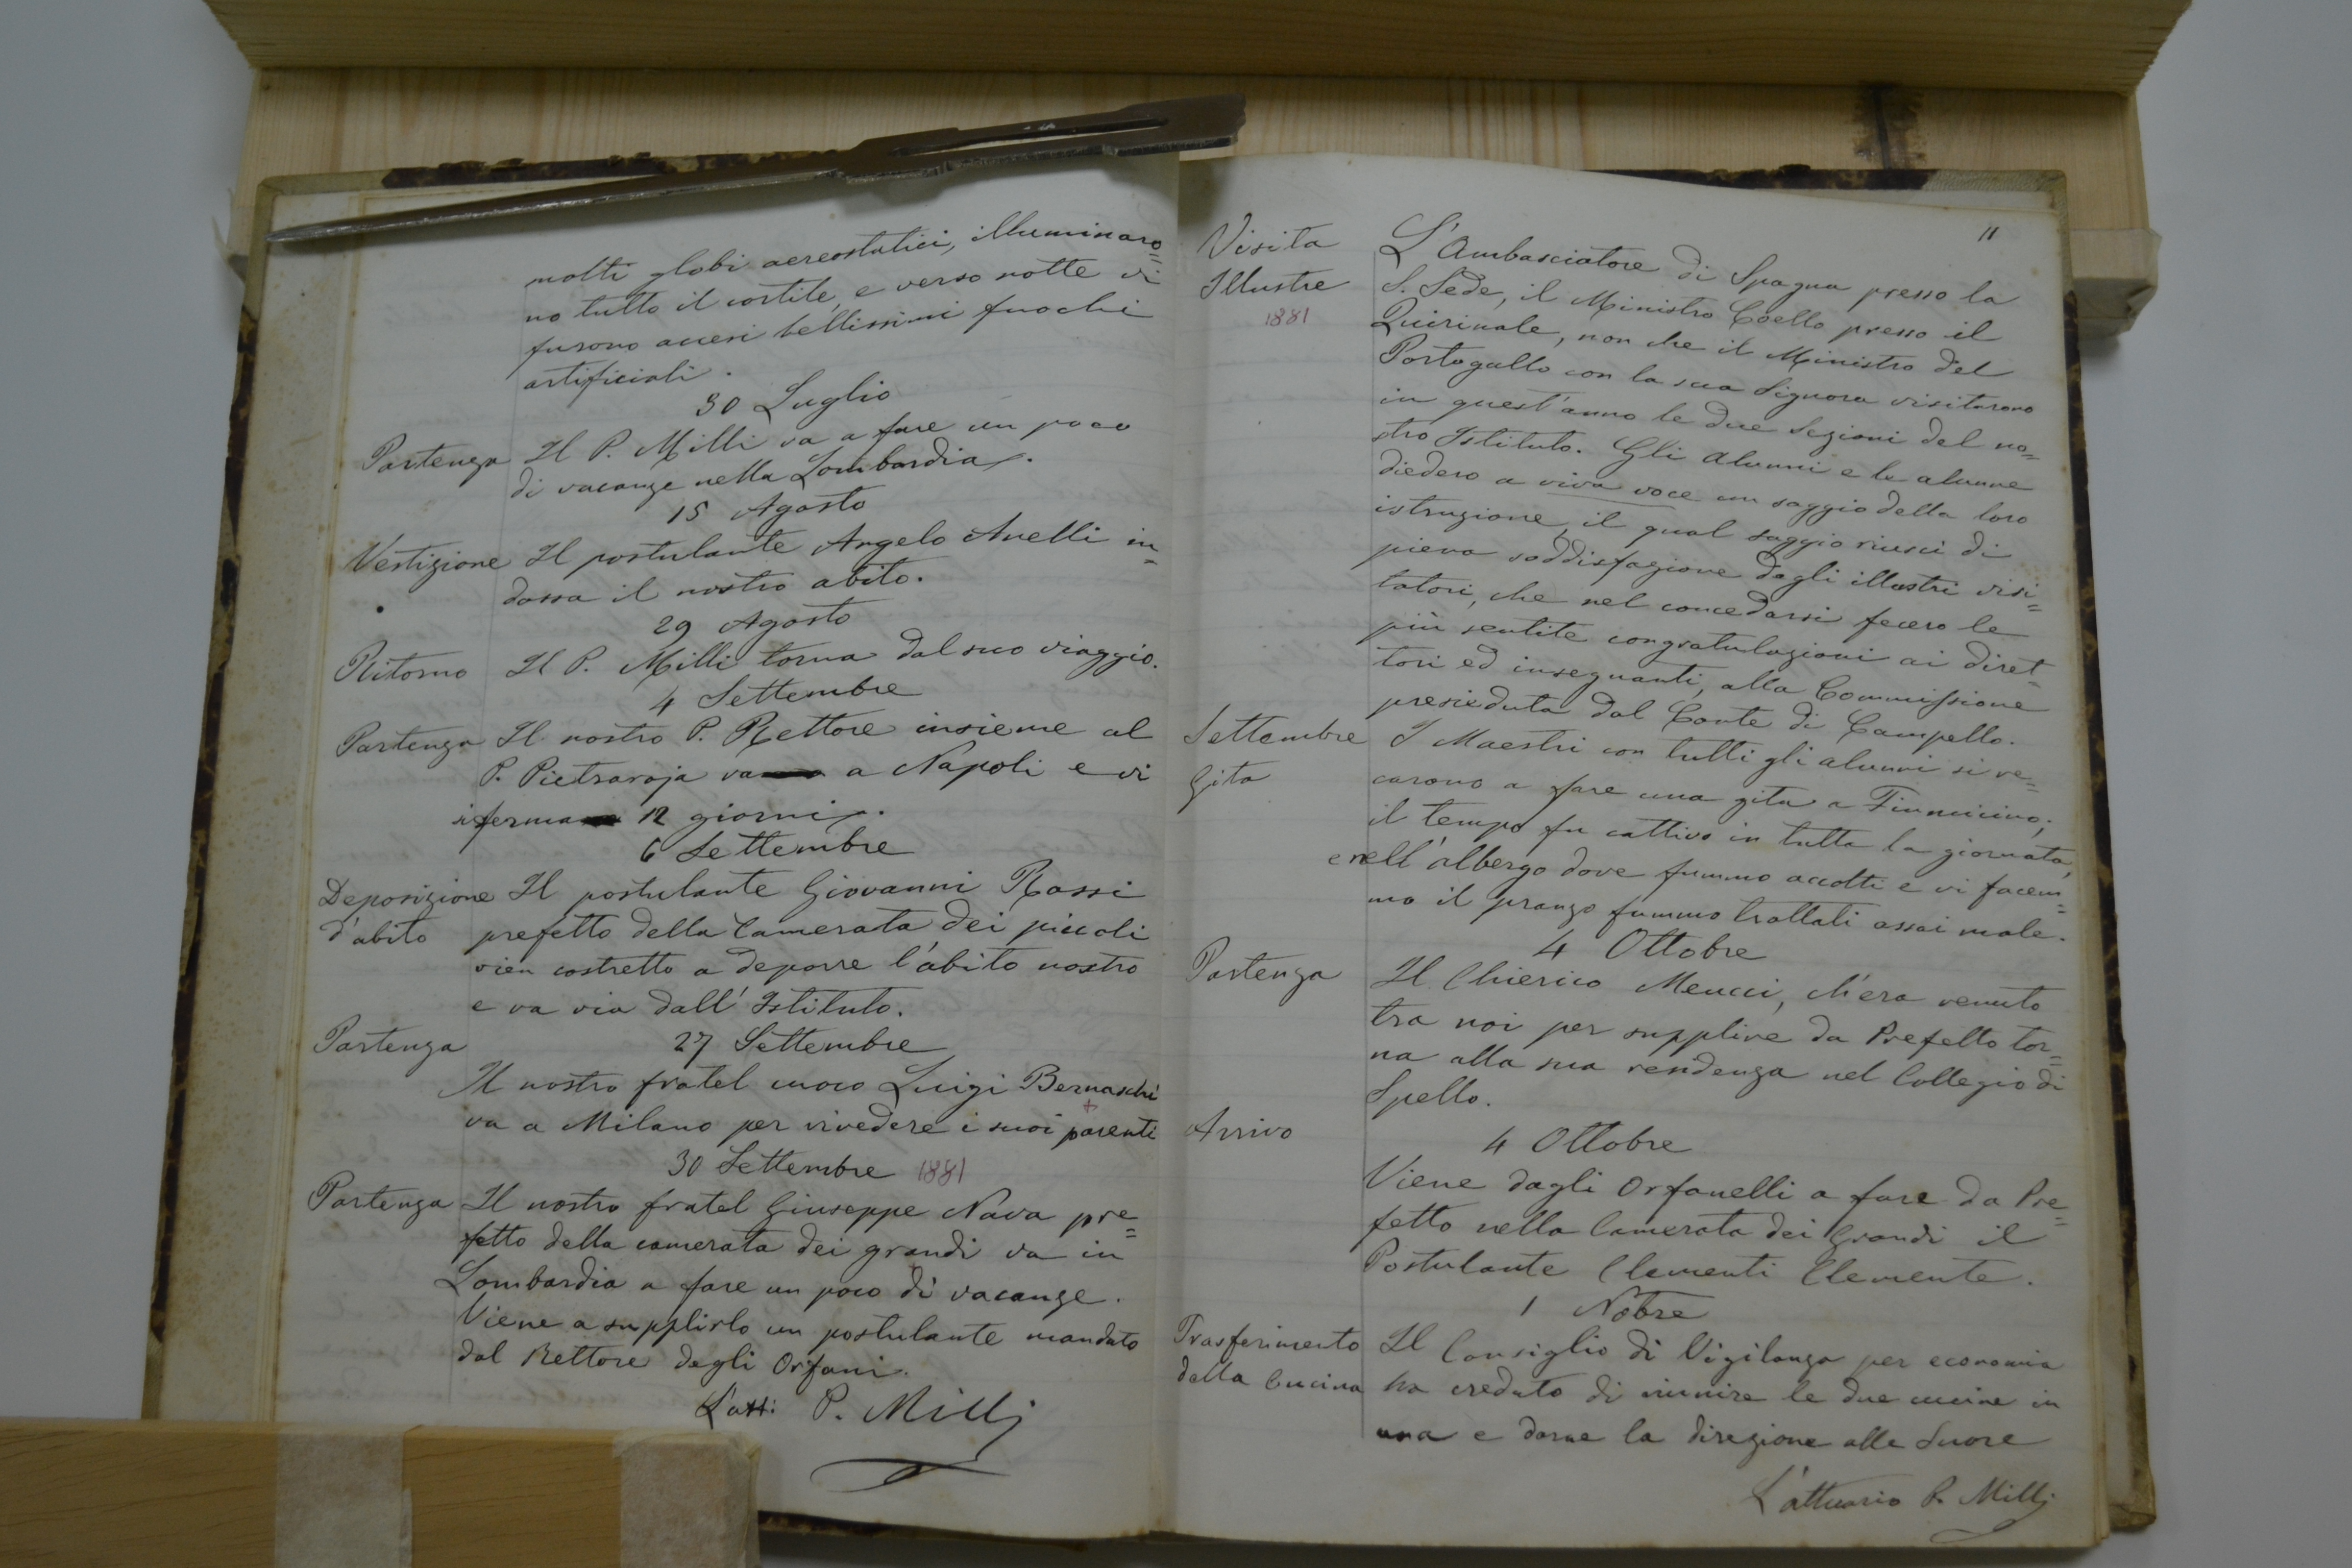 molti globi aereostatici, illuminaro=
no tutto il cortile, e verso notte vi
furono accesi bellissimi fuochi
artificiali.
30 Luglio
Partenza Il P. Milli va a fare un poco
di vacanze nella Lombardia.
15 Agosto
Vestizione Il postulante Angelo Anelli in=
dossa il nostro abito.
29 Agosto
Ritorno Il P. Milli torna dal suo viaggio.
4 Settembre
Partenza Il nostro P. Rettore insieme al
P. Pietraroja va a Napoli e vi
si ferma 12 giorni.
6 Settembre
Deposizione Il postulante Giovanni Rossi
d'abito prefetto della Camerata dei piccoli
vien costretto a deporre l'abito nostro
e va via dall'Istituto.
Partenza 27 Settembre
Il nostro fratel cuoco Luigi Bernaschi
va a Milano per rivedere i suoi parenti
30 Settembre 1881
Partenza Il nostro fratel Giuseppe Nava pre=
fetto della camerata dei grandi va in
Lombardia a fare un poco di vacanze.
Viene a supplirlo un postulante mandato
dal Rettore degli Orfani.
L'att: P. Milli
11
Visita L'Ambasciatore di Spagna presso la
Illustre S. Sede, il Ministro Coello presso il
1881 Quirinale, non che il Ministro del
Portogallo con la sua Signora visitarono
in quest'anno le due Sezioni del no=
stro Istituto. Gli alunni e le alunne
diedero a viva voce un saggio della loro
istruzione, il qual saggio riuscì di
piena soddisfazione degli illustri visi=
tatori, che nel concedarsi fecero le
più sentite congratulazioni ai diret=
tori ed insegnanti, alla Commissione
presieduta dal Conte di Campello.
Settembre I Maestri con tutti gli alunni si re=
Gita carono a fare una gita a Fiumicino;
il tempo fu cattivo in tutta la giornata,
e nell'albergo dove fummo accolti e vi facem=
mo il pranzo fummo trattati assai male.
4 Ottobre
Partenza Il Chierico Meucci, ch'era venuto
tra noi per supplire da Prefetto tor=
na alla sua residenza nel Collegio di
Spello.
Arrivo 4 Ottobre
Viene dagli Orfanelli a fare da Pre=
fetto nella Camerata dei Grandi il
Postulante Clementi Clemente.
1 Nobre
Trasferimento Il Consiglio di Vigilanza per economia
della Cucina ha creduto di riunire le due cucine in
una e darne la direzione alle Suore
L'attuario P. Milli